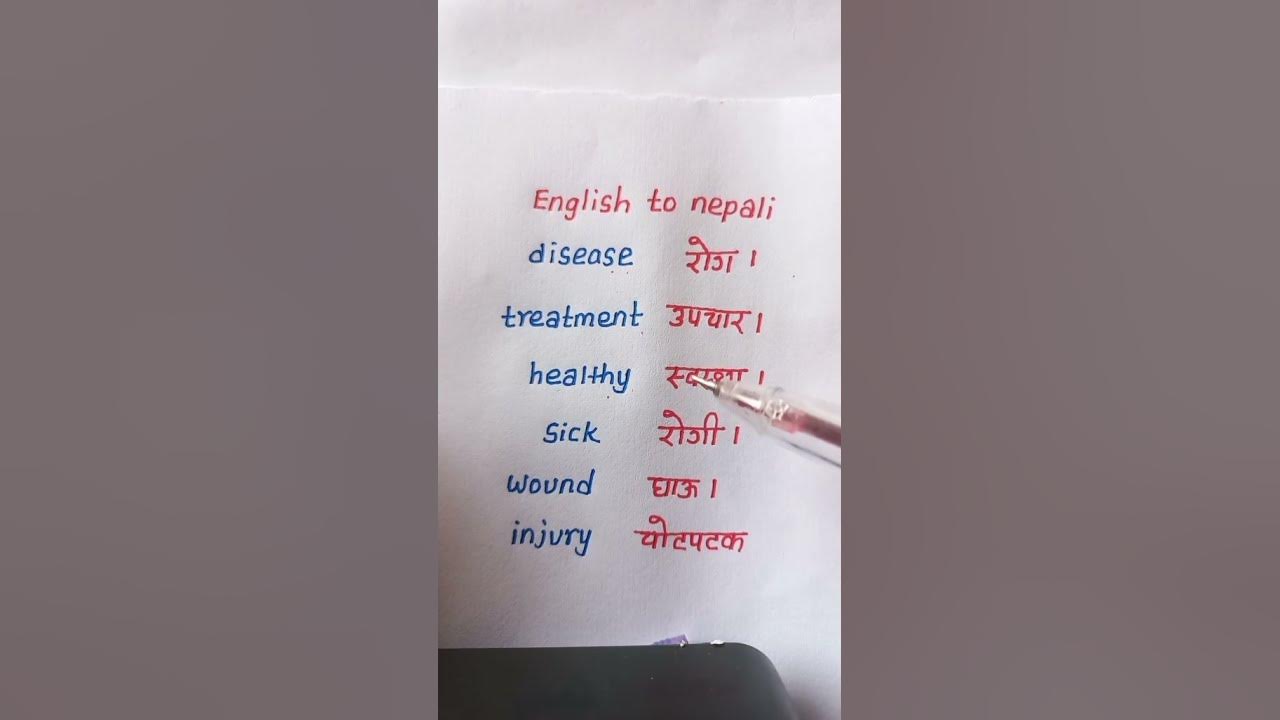 English to nepali
disease रोग ।
treatment उपचार ।
healthy ।
sick रोगी ।
wound घाऊ ।
injury चोटपटक